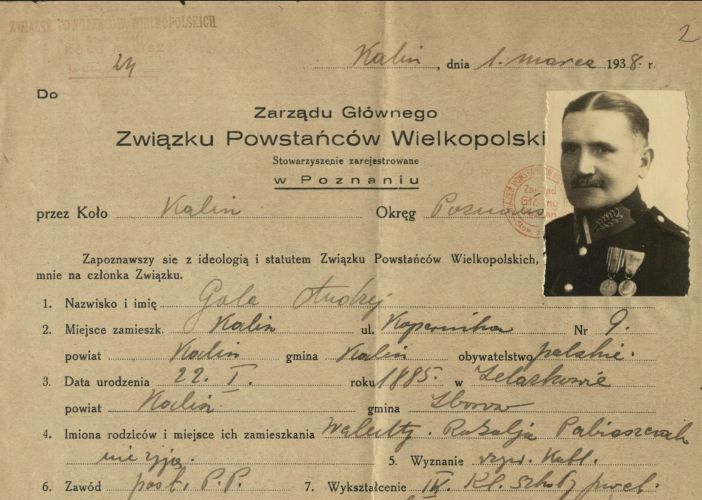 ZWIĄZEK POWSTAŃCÓW WIELKOPOLSKICH
24
2
Kalisz, dnia 1. marca 1938. r.
Do
Zarządu Głównego
Związku Powstańców Wielkopolski
Stowarzyszenie zarejestrowane
w Poznaniu
przez Koło Kalisz Okręg Poznańs
Zapoznawszy się z ideologią i statutem Związku Powstańców Wielkopolskich,
mnie na członka Związku.
1. Nazwisko i imię Gola Andrzej
2. Miejsce zamieszk. Kalisz ul. Kopernika Nr 9.
powiat Kalisz gmina Kalisz obywatelstwo polskie.
3. Data urodzenia 22. I. roku 1885. w
powiat Kalisz gmina Zborów
4. Imiona rodziców i miejsce ich zamieszkania Walenty. Rozalja
nie żyją 5. Wyznanie rzym. Kat.
6. Zawód post. P.P. 7. Wykształcenie IV. Kl. szkoły